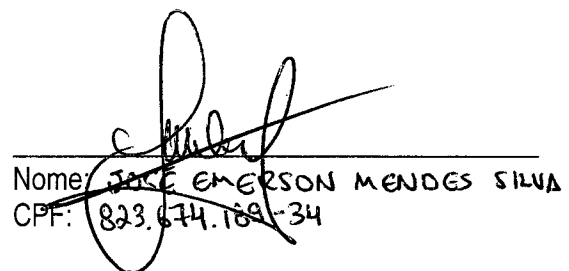 Nome: JOSÉ EMERSON MENDES SILVA
CPF: 823.674.189-34